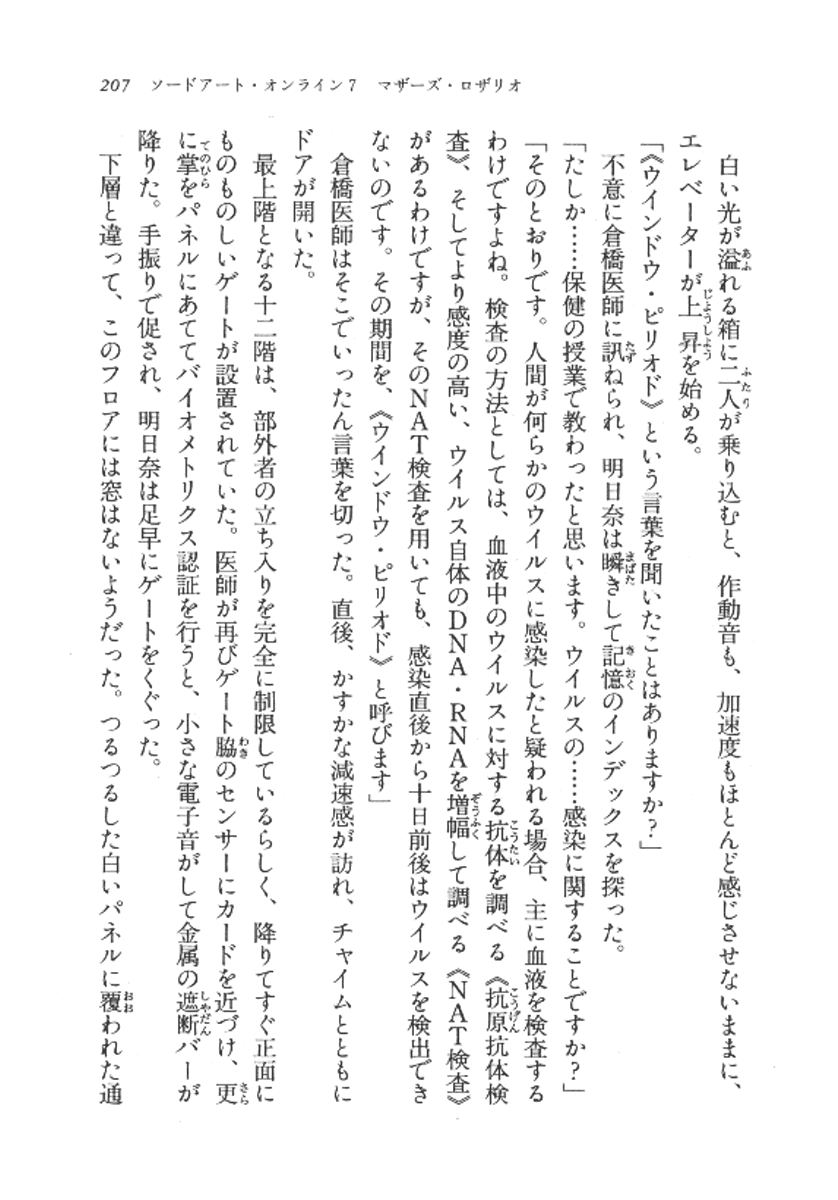 207 ソードアート・オンライン7 マザーズ・ロザリオ
白い光が溢れる箱に二人が乗り込むと、作動音も、加速度もほとんど感じさせないままに、
エレベーターが上昇を始める。
「《ウインドウ・ピリオド》という言葉を聞いたことはありますか?」
不意に倉橋医師に訊ねられ、明日奈は瞬きして記憶のインデックスを探った。
「たしか……保健の授業で教わったと思います。ウイルスの……感染に関することですか?」
「そのとおりです。人間が何らかのウイルスに感染したと疑われる場合、主に血液を検査する
わけですよね。検査の方法としては、血液中のウイルスに対する抗体を調べる《抗原抗体検
査》、そしてより感度の高い、ウイルス自体のDNA・RNAを増幅して調べる《NAT検査》
があるわけですが、そのNAT検査を用いても、感染直後から十日前後はウイルスを検出でき
ないのです。その期間を、《ウインドウ・ピリオド》と呼びます」
倉橋医師はそこでいったん言葉を切った。直後、かすかな減速感が訪れ、チャイムとともに
ドアが開いた。
最上階となる十二階は、部外者の立ち入りを完全に制限しているらしく、降りてすぐ正面に
ものものしいゲートが設置されていた。医師が再びゲート脇のセンサーにカードを近づけ、更
に掌をパネルにあててバイオメトリクス認証を行うと、小さな電子音がして金属の遮断バーが
降りた。手振りで促され、明日奈は足早にゲートをくぐった。
下層と違って、このフロアには窓はないようだった。つるつるした白いパネルに覆われた通